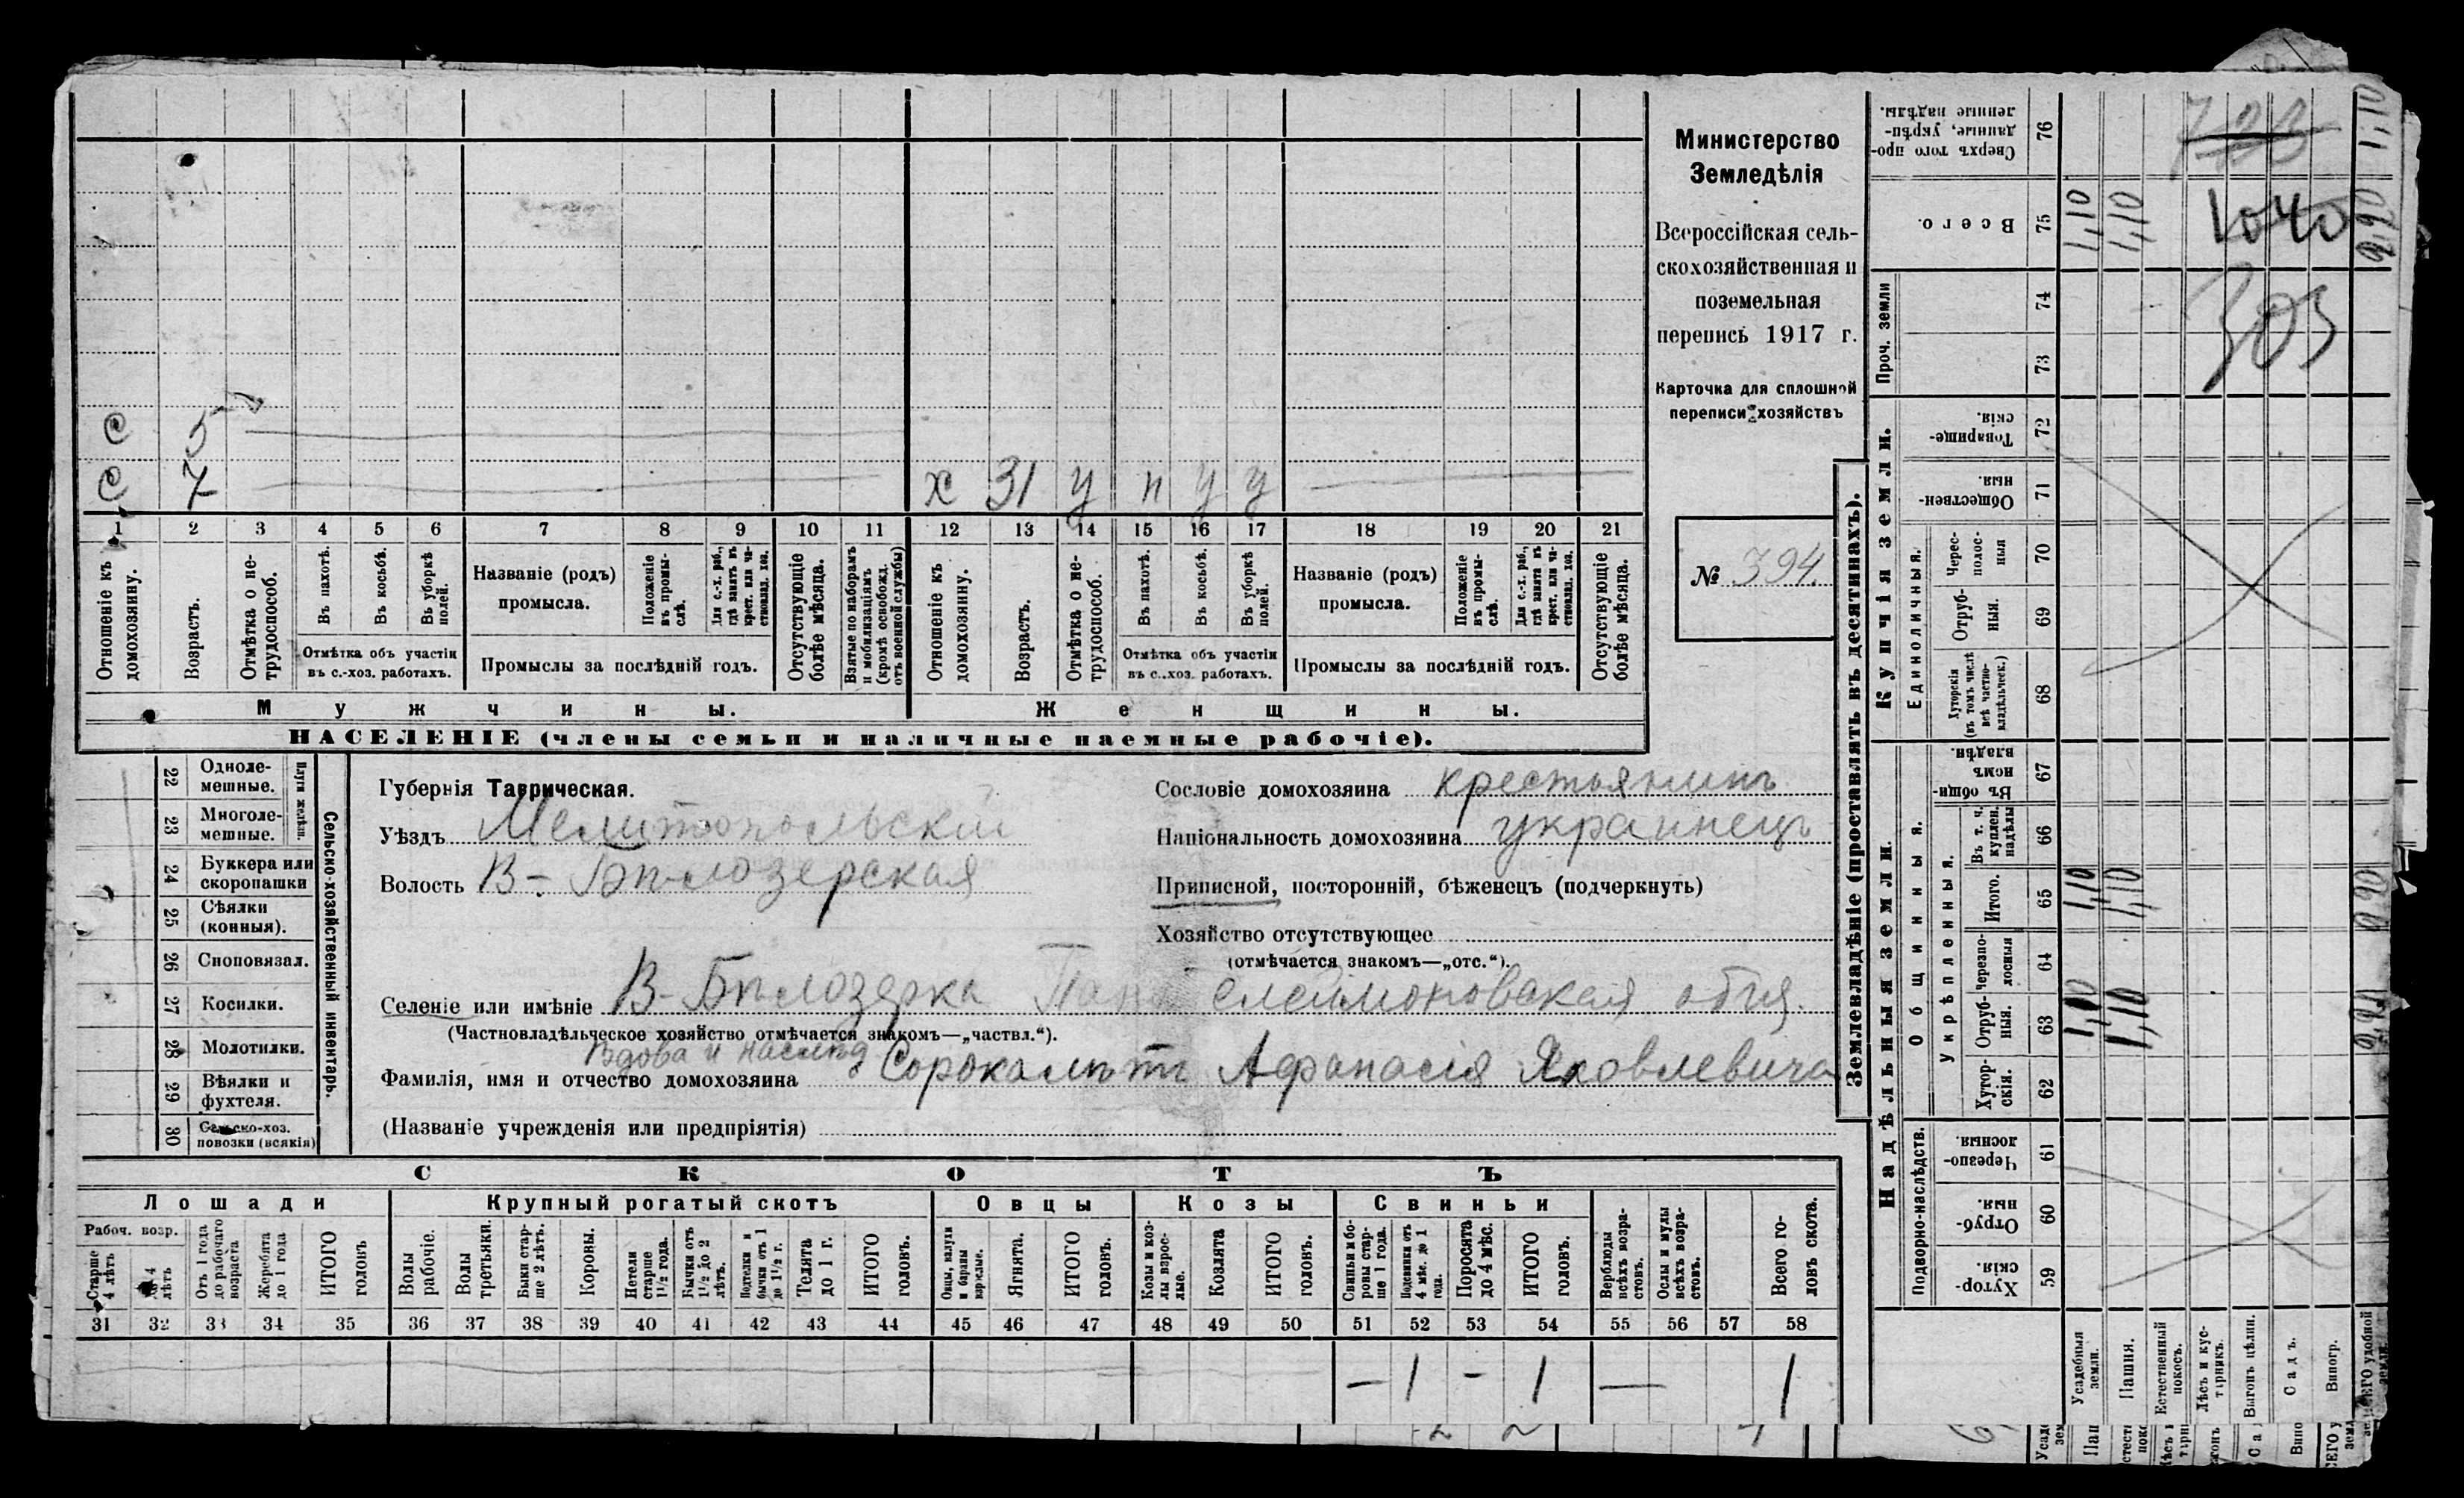 С 5
С 7 х 31 у п у у
1 2 3 4 5 6 7 8 9 10 11 12 13 14 15 16 17 18 19 20 21
Отношеніе къ домохозяину.
Возрастъ.
Отмѣтка о не-
трудоспособ.
Въ пахотѣ.
Въ косьбѣ.
Въ уборкѣ
полей.
Отмѣтка объ участіи
въ с.-хоз. работахъ.
Названіе (родъ)
промысла.
Положеніе
въ промы-
слѣ.
Для с.-х. раб.,
гдѣ занятъ въ
крест. или ча-
стновлад. хоз.
Промыслы за послѣдній годъ.
Отсутствующіе
болѣе мѣсяца.
Взятые по наборамъ
и мобилизаціямъ
(кромѣ освобожд.
отъ военной службы)
Отношеніе къ
домохозяину.
Возрастъ.
Отмѣтка о не-
трудоспособ.
Въ пахотѣ.
Въ косьбѣ.
Въ уборкѣ
полей.
Отмѣтка объ участіи
въ с.-хоз. работахъ.
Названіе (родъ)
промысла.
Положеніе
въ промы-
слѣ.
Для с.-х. раб.,
гдѣ занята въ
крест. или ча-
стновлад. хоз.
Промыслы за послѣдній годъ.
Отсутствующіе
болѣе мѣсяца.
Мужчины. Женщины.
НАСЕЛЕНІЕ (члены семьи и наличные наемные рабочіе).
Министерство
Земледѣлія
Всероссійская сель-
скохозяйственная и
поземельная
перепись 1917 г.
Карточка для сплошной
переписи хозяйствъ
№ 394.
22 Одноле-
мешные.
23 Многоле-
мешные.
24 Буккера или
скоропашки
25 Сѣялки
(конныя).
26 Сноповязал.
27 Косилки.
28 Молотилки.
29 Вѣялки и
фухтеля.
30 Сельско-хоз.
повозки (всякія)
Сельско-хозяйственный инвентарь.
Губернія Таврическая.
Уѣздъ Мелитопольскій
Волость В-Бѣлозерская
Сословіе домохозяина крестьянинъ
Національность домохозяина украинецъ
Приписной, посторонній, бѣженецъ (подчеркнуть)
Хозяйство отсутствующее
(отмѣчается знакомъ—„отс.“).
Селеніе или имѣніе В-Бѣлозерка
(Частновладѣльческое хозяйство отмѣчается знакомъ—„частвл.“).
Вдова и наслѣд
Фамилія, имя и отчество домохозяина Сорокалѣтъ Афанасія Яковлевича
(Названіе учрежденія или предпріятія)
СКОТЪ
Лошади Крупный рогатый скотъ Овцы Козы Свиньи
Рабоч. возр.
Старше
4 лѣтъ
До 4
лѣтъ
Отъ 1 года
до рабочаго
возраста
Жеребята
до 1 года
ИТОГО
головъ
Волы
рабочіе.
Волы
третьяки.
Быки стар-
ше 2 лѣтъ.
Коровы.
Нетели
старше
1½ года.
Бычки отъ
1½ до 2
лѣтъ.
Подтелки и
бычки отъ 1
до 1½ г.
Телята
до 1 г.
ИТОГО
головъ.
Овцы, валухи
и бараны
взрослые.
Ягнята.
ИТОГО
головъ.
Козы и коз-
лы взрос-
лые.
Козлята
ИТОГО
головъ.
Свиньи и бо-
ровы стар-
ше 1 года.
Подсвинки отъ
4 мѣс. до 1
года.
Поросята
до 4 мѣс.
ИТОГО
головъ.
Верблюды
всѣхъ возра-
стовъ.
Ослы и мулы
всѣхъ возра-
стовъ.
Всего го-
ловъ скота.
31 32 33 34 35 36 37 38 39 40 41 42 43 44 45 46 47 48 49 50 51 52 53 54 55 56 57 58
— 1 - 1 — 1
Землевладѣніе (проставлять въ десятинахъ).
Надѣльныя земли. Купчія земли.
Подворно-наслѣдств.
Общинныя.
Укрѣпленныя.
Единоличныя.
Проч. земли
Сверхъ того про-
данные, укрѣп-
ленные надѣлы. 76
Всего. 75 1,10 1,10
74
73
Товарище-
скія. 72
Обществен-
ныя. 71
Черес-
полос-
ныя 70
Отруб-
ныя. 69
Хуторскія
(въ томъ числѣ
всѣ частно-
владѣльческ.) 68
Въ общин-
номъ
владѣн. 67
Въ т. ч.
куплен.
надѣлы 66
Итого. 65 1,10 1,10
Черезпо-
лосныя 64
Отруб-
ныя. 63 1,10 1,10
Хутор-
скія. 62
Черезпо-
лосныя. 61
Отруб-
ныя. 60
Хутор-
скія. 59
1040
303
Усадебныя
земли.
Пашня.
Естественный
покосъ.
Лѣсъ и кус-
тарникъ.
Выгонъ цѣлин.
Садъ.
Виногр.